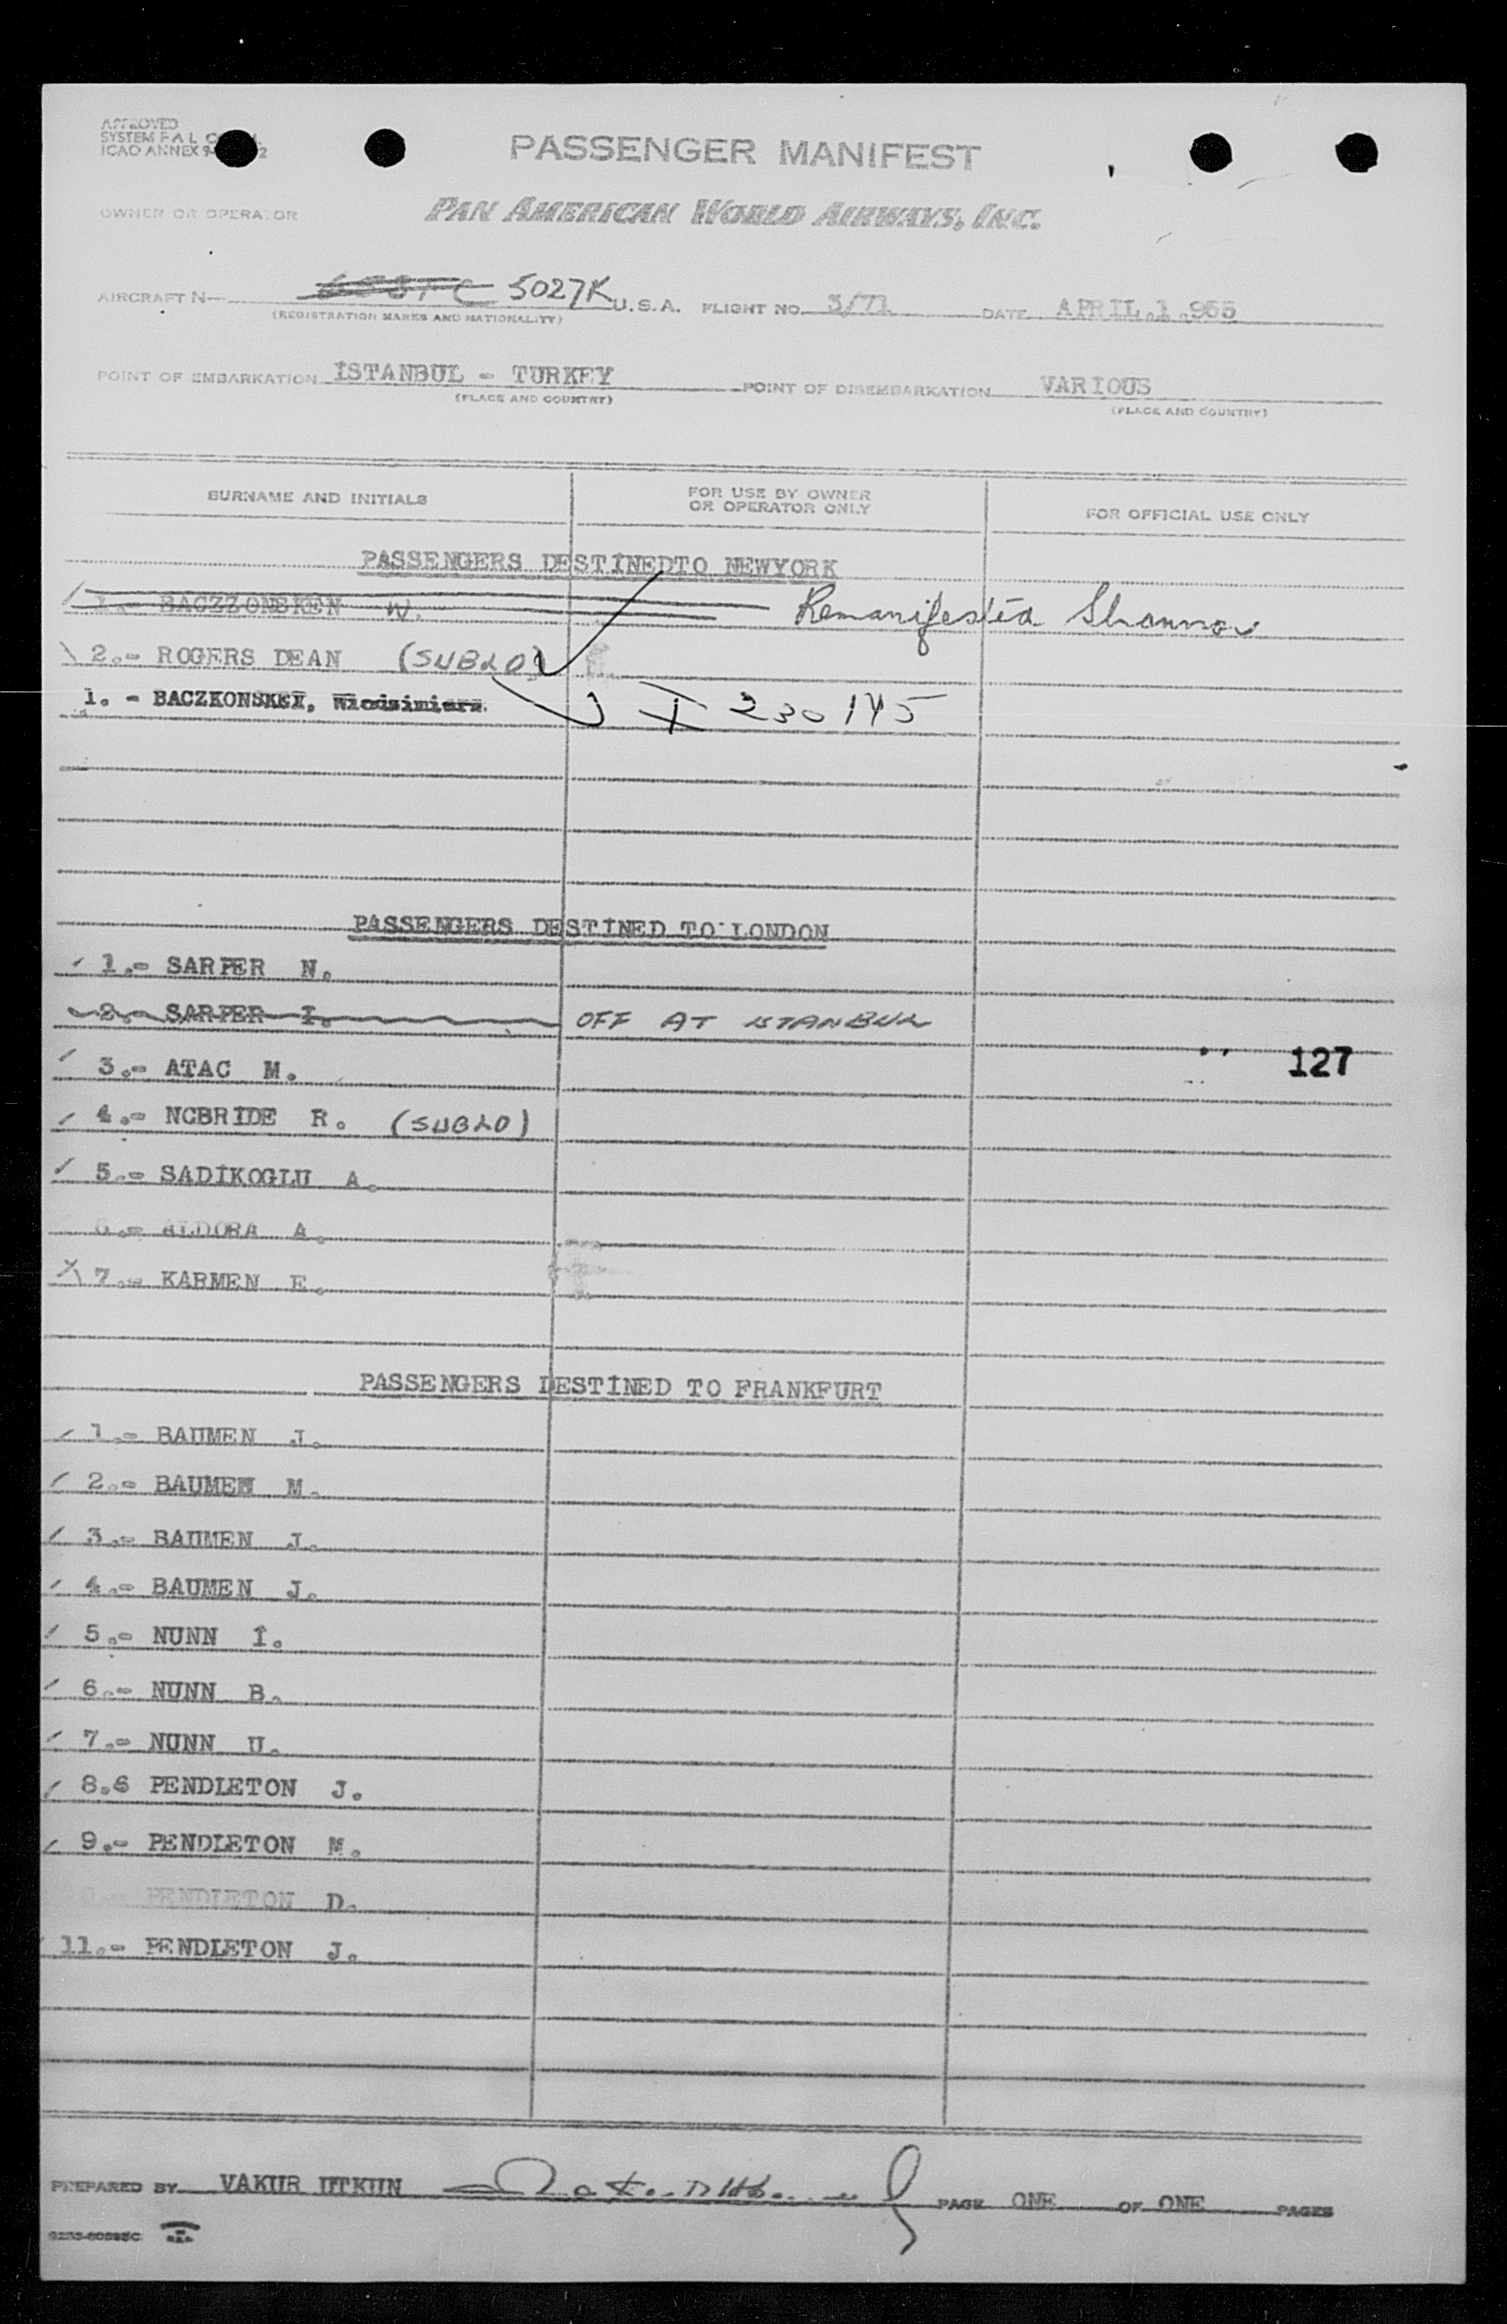 APPROVED
SYSTEM F A L
ICAO ANNEX 9
PASSENGER MANIFEST
OWNER OR OPERATOR PAN AMERICAN WORLD AIRWAYS, INC.
AIRCRAFT N— 5027K U.S.A. FLIGHT NO. 3/71 DATE APRIL.1.955
(REGISTRATION MARKS AND NATIONALITY)
POINT OF EMBARKATION İSTANBUL - TURKEY POINT OF DISEMBARKATION VARIOUS
(PLACE AND COUNTRY) (PLACE AND COUNTRY)
SURNAME AND INITIALS
FOR USE BY OWNER
OR OPERATOR ONLY
FOR OFFICIAL USE ONLY
PASSENGERS DESTİNEDTO NEWYORK
1.- BACZZONSKEN W. Remanifested Shannon
2.- ROGERS DEAN (SUBLO)
1. - BACZKONSKEI, Wlodzimierz. I 230145
PASSENGERS DESTİNED TO LONDON
1.- SARPER N.
2.- SARPER I. OFF AT ISTANBUL
3.- ATAC M.
127
4.- NCBRIDE R. (SUBLO)
5.- SADİKOGLU A.
6.- ALDORA A.
7.- KARMEN E.
PASSENGERS DESTİNED TO FRANKFURT
1.- BAUMEN J.
2.- BAUMEN M.
3.- BAUMEN J.
4.- BAUMEN J.
5.- NUNN İ.
6.- NUNN B.
7.- NUNN U.
8.6 PENDLETON J.
9.- PENDLETON M.
PENDLETON D.
11.- PENDLETON J.
PREPARED BY VAKUR UTKUN PAGE ONE OF ONE PAGES